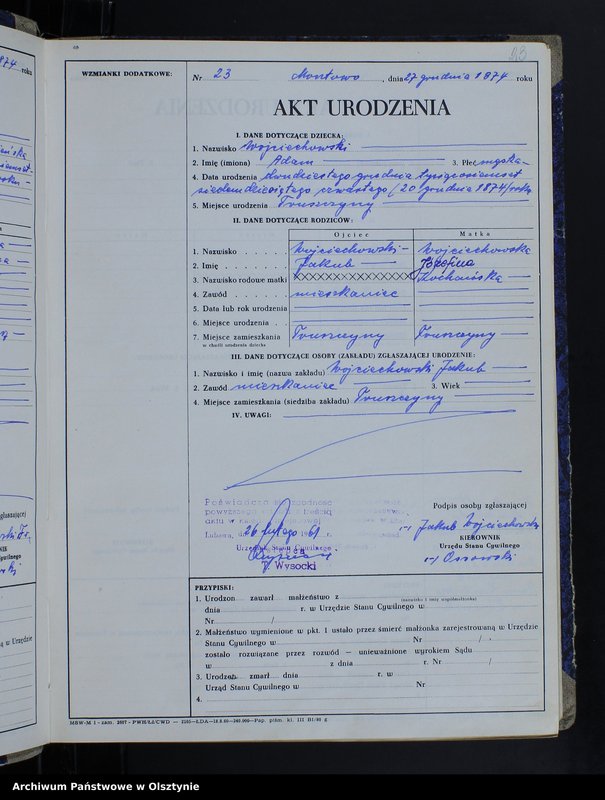 874 roku
68
23
WZMIANKI DODATKOWE:
Nr 23 Montowo, dnia 27 grudnia 1874 roku
AKT URODZENIA
I. DANE DOTYCZĄCE DZIECKA:
1. Nazwisko Wojciechowski
2. Imię (imiona) Adam 3. Płeć męska
4. Data urodzenia dwudziestego grudnia tysiącosiemset
siedemdziesiątego czwartego (20 grudnia 1874) roku
5. Miejsce urodzenia Truszczyny
II. DANE DOTYCZĄCE RODZICÓW:
Ojciec Matka
1. Nazwisko Wojciechowski Wojciechowska
2. Imię Jakub Józefina
3. Nazwisko rodowe matki XXXXXXXXXXXX
4. Zawód mieszkaniec
5. Data lub rok urodzenia
6. Miejsce urodzenia
7. Miejsce zamieszkania Truszczyny Truszczyny
w chwili urodzenia dziecka
III. DANE DOTYCZĄCE OSOBY (ZAKŁADU) ZGŁASZAJĄCEJ URODZENIE:
1. Nazwisko i imię (nazwa zakładu) Wojciechowski Jakub
2. Zawód mieszkaniec 3. Wiek
4. Miejsce zamieszkania (siedziba zakładu) Truszczyny
IV. UWAGI:
Poświadcza się zgodność
powyższego z treścią
aktu w
Lubawa, d. 26 lutego 1961 r.
Urzędnik Stanu Cywilnego
J. Wysocki
Podpis osoby zgłaszającej
-/ Jakub Wojciechowski
KIEROWNIK
Urzędu Stanu Cywilnego
-/ Ossowski
PRZYPISKI:
1. Urodzon zawarł małżeństwo z
(nazwisko i imię współmałżonka)
dnia r. w Urzędzie Stanu Cywilnego w
Nr /
2. Małżeństwo wymienione w pkt. 1 ustało przez śmierć małżonka zarejestrowaną w Urzędzie
Stanu Cywilnego w Nr /
zostało rozwiązane przez rozwód — unieważnione wyrokiem Sądu
w z dnia r. Nr /
3. Urodzon zmarł dnia r. w
Urząd Stanu Cywilnego w Nr
4.
Archiwum Państwowe w Olsztynie